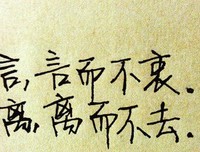 言，言而不衷。
离，离而不去。